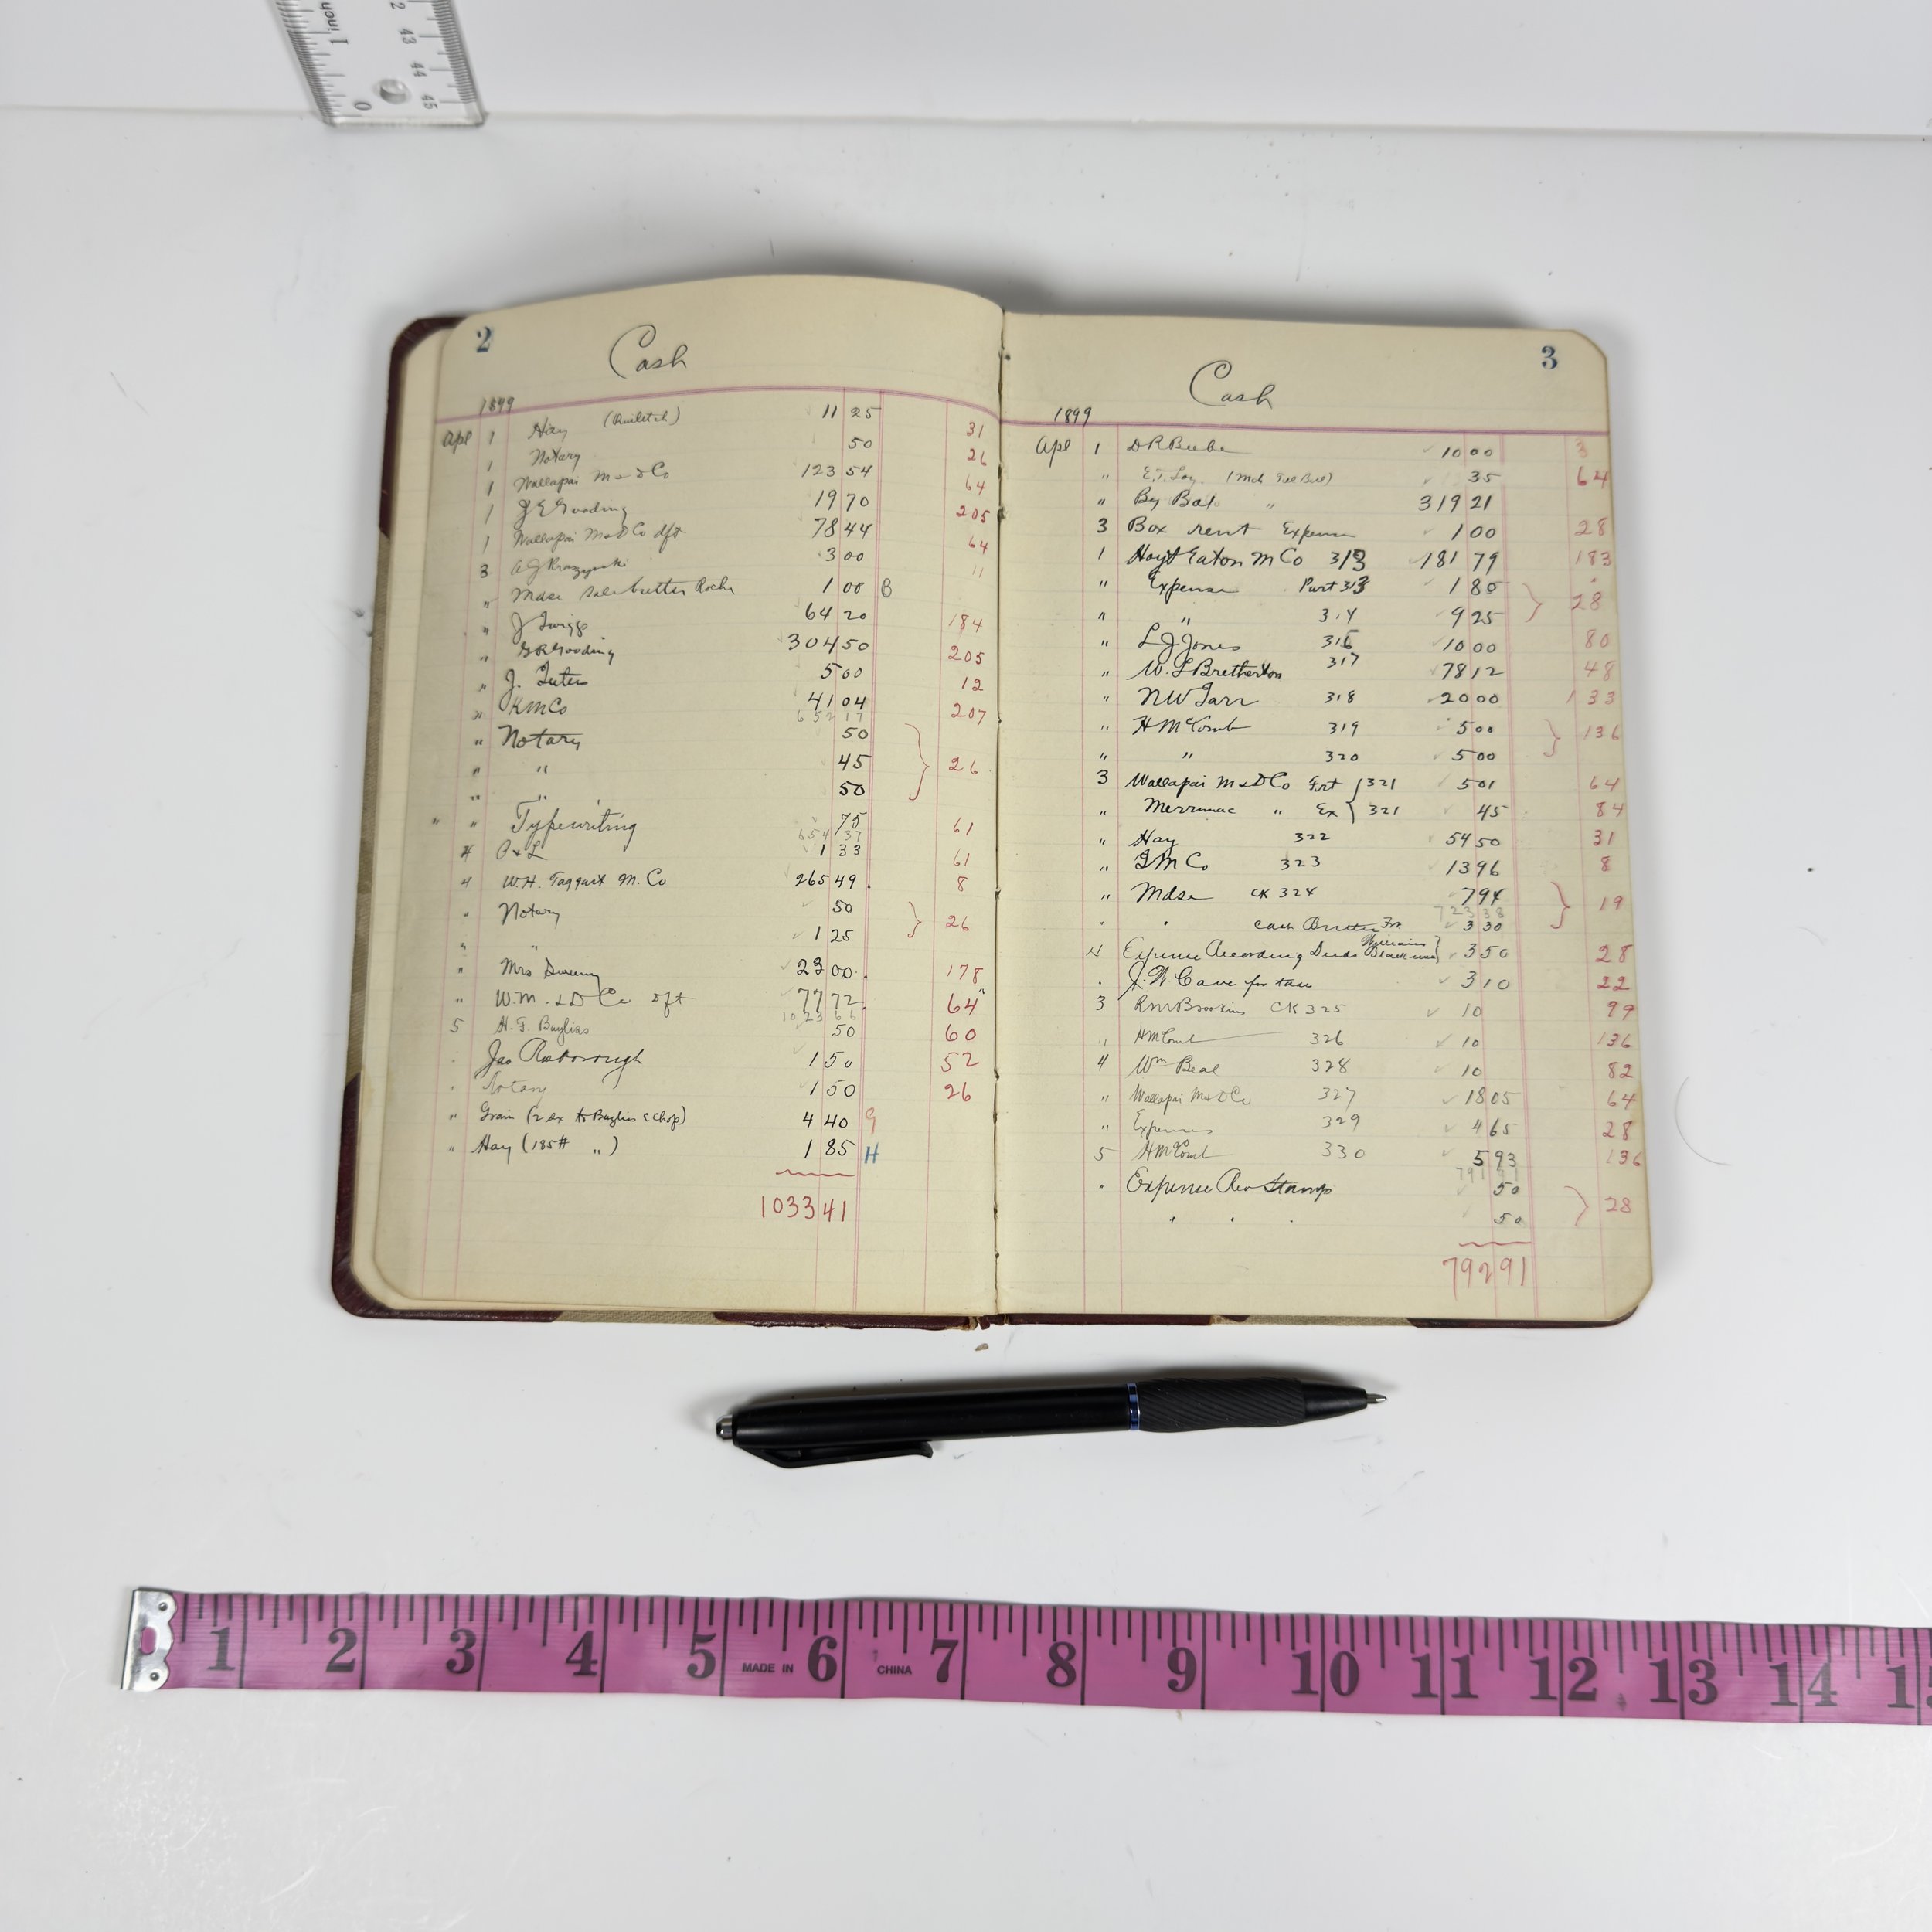 1 inch
0
2 43 44 45
2
Cash
1899
Apl 1 Hay 11 25 31
1 Notary 50 26
1 Wallapai M & D Co 123 54 64
1 J E Gooding 19 70 205
1 Wallapai M & D Co dft 78 44 64
3 3 00 11
" Mdse Sale butter Roche 1 00 B
" J Twiggs 64 20 184
" G R Gooding 304 50 205
" J. 5 00 12
" K M Co 41 04 207
652 17
" Notary 50
" " 45 26
" " 50
" " Typewriting 75 61
654 37
4 P & L 1 33 61
4 W.H. Taggart M. Co 265 49 8
" Notary 50
" " 1 25 26
" Mrs Sweeny 23 00 178
" W. M. & D Co dft 77 72 64
1023 66
5 H. F. Baylias 50 60
" Jas Roxborough 1 50 52
" Notary 1 50 26
" Grain (2 sx to Baylias & Chop) 4 40 G
" Hay (185# ") 1 85 H
1033 41
3
Cash
1899
Apl 1 D R Beebe 10 00 3
" E.T. Loy. 35 64
" By Bal. " 319 21
3 Box rent Expense 1 00 28
1 Hoyt Eaton M Co 313 181 79 183
" Expense Part 313 1 80
" " 314 9 25 28
" L J Jones 316 10 00 80
" W. L Bretherton 317 78 12 48
" N W Tarr 318 20 00 133
" H McComb 319 5 00
" " 320 5 00 136
3 Wallapai M & D Co Frt 321 5 01 64
" Merrimac " Ex 321 45 84
" Hay 322 54 50 31
" T M Co 323 13 96 8
" Mdse CK 324 7 94
723 38 19
" " Cash Butter 3 30
4 Expense Recording Deeds Williams Blackman 3 50 28
" J. N. Cave for taxes 3 10 22
3 R M Brookins CK 325 10 99
" H McComb 326 10 136
4 Wm Beal 328 10 82
" Wallapai M & D Co 327 18 05 64
" Expenses 329 4 65 28
5 H McComb 330 5 93 136
791 91
" Expense Rev Stamps 50
" " " 50 28
792 91
1 2 3 4 5 MADE IN 6 CHINA 7 8 9 10 11 12 13 14 15